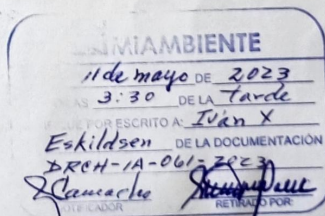 MIAMBIENTE
11 de mayo DE 2023
3:30 DE LA tarde
POR ESCRITO A: Iván X
Eskildsen DE LA DOCUMENTACIÓN
DRCH-IA-061-2023
Camacho
NOTIFICADOR RETIRADO POR: